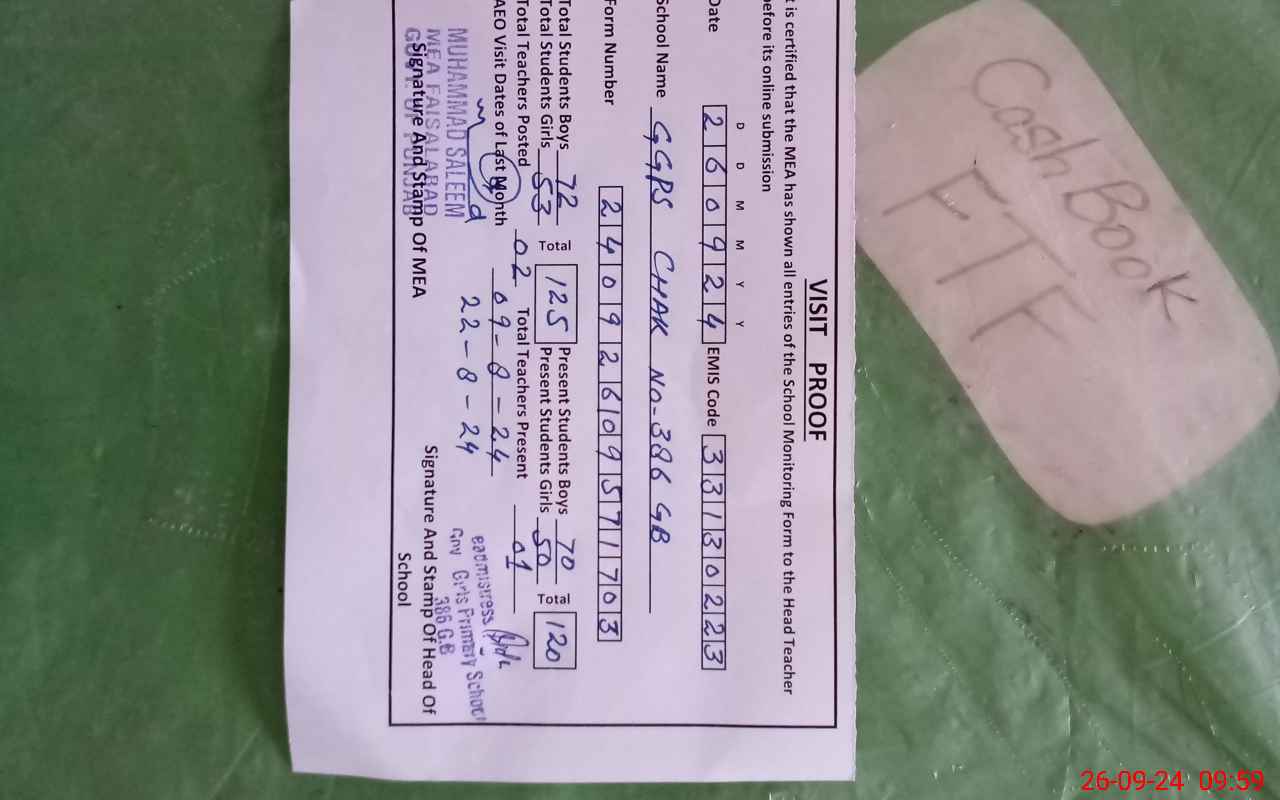 VISIT PROOF
t is certified that the MEA has shown all entries of the School Monitoring Form to the Head Teacher
before its online submission
D D M M Y Y
Date 260924 EMIS Code 33130223
School Name GGPS CHAK NO-386 GB
Form Number 24092609571703
Total Students Boys 72 Total 125 Present Students Boys 70 Total 120
Total Students Girls 53 Present Students Girls 50
Total Teachers Posted 02 Total Teachers Present 01
AEO Visit Dates of Last Month 09-8-24
22-8-24
MUHAMMAD SALEEM
MEA FAISALABAD
GOVT. OF PUNJAB
Signature And Stamp Of MEA
eadmistress
Gov Girls Primary School
386 G.B
Signature And Stamp Of Head Of
School
Cash Book
FTF
26-09-24 09:59